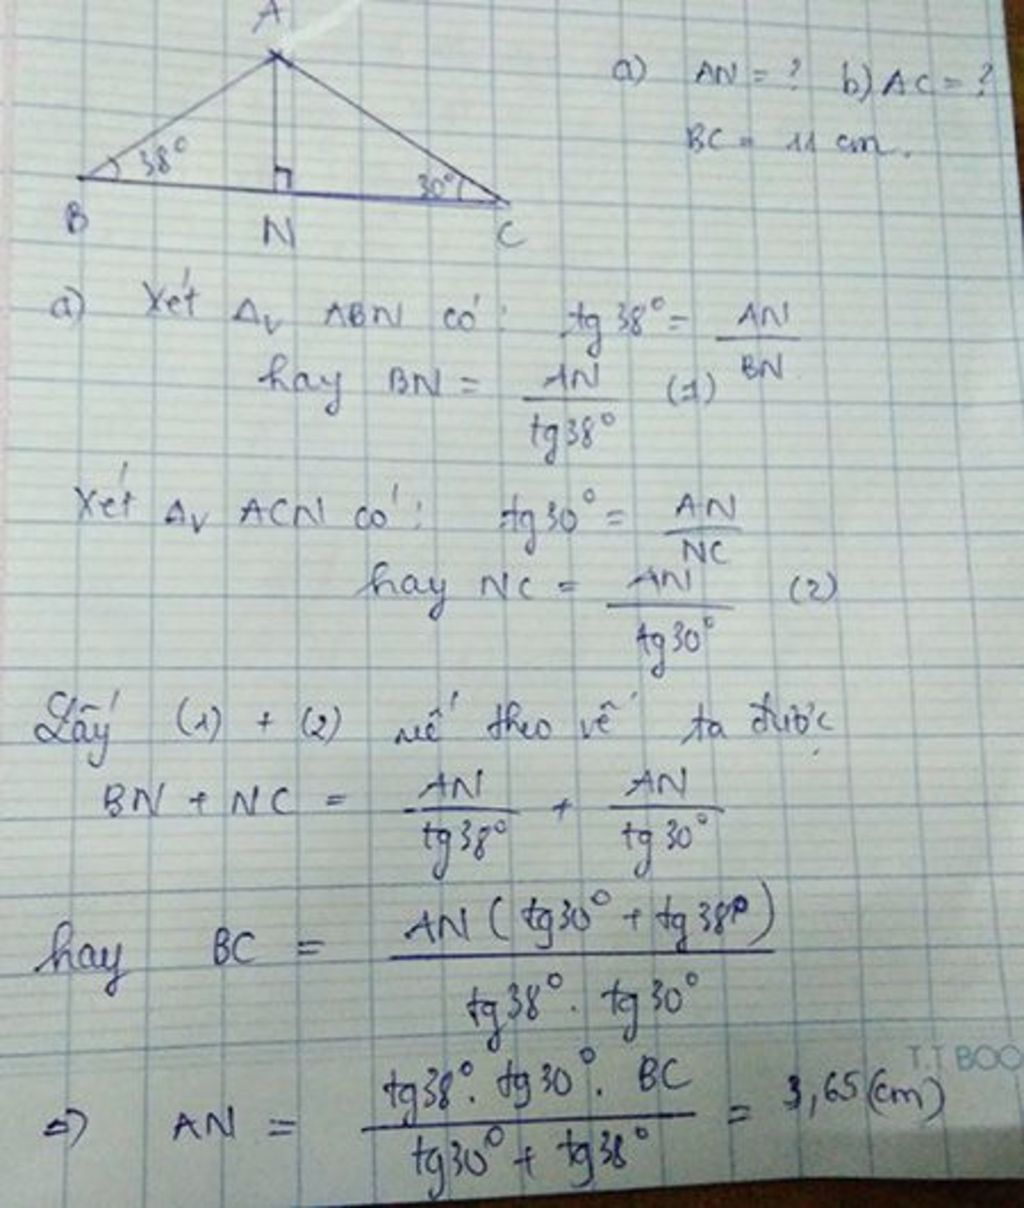 A
a) AN = ? b) AC = ?
BC = 11 cm.
38° 30°
B N C
a) Xét Δv ABN có: tg 38° = AN / BN
hay BN = AN / tg38° (1)
Xét Δv ACN có: tg30° = AN / NC
hay NC = AN / tg30° (2)
Lấy (1) + (2) theo vế ta được
BN + NC = AN / tg38° + AN / tg30°
hay BC = AN ( tg30° + tg38° ) / tg38° . tg30°
T.T BOO
=> AN = tg38° . tg30° . BC / tg30° + tg38° = 3,65 (cm)